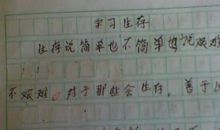 学习生存
生存说简单也不简单说艰难
不艰难。对于那些会生存。善于